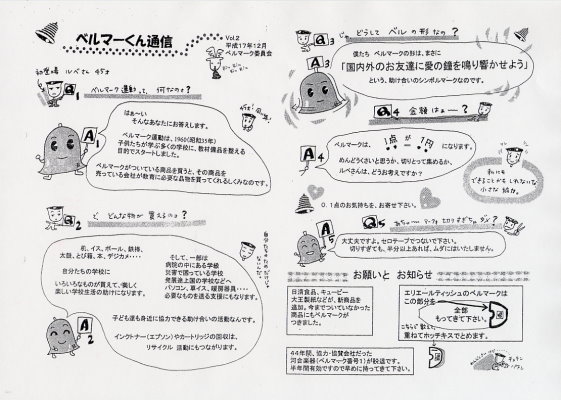 ベルマーくん通信
Vol.2
平成17年12月
ベルマーク委員会
Q1 ベルマーク運動って、何なの?
A1
はぁ〜い
そんなあなたにお答えします。
ベルマーク運動は、1960(昭和35)年
子供たちが学ぶ多くの学校に、教材備品を整える
目的でスタートしました。
ベルマークがついている商品を買うと、その商品を
売っている会社が教育に必要な品物を買ってくれるしくみなのです。
Q2 で、どんな物が買えるのョ?
机、イス、ボール、鉄棒、
太鼓、とび箱、本、デジカメ・・・
自分たちの学校に
いろいろなものが買えて、楽しく
楽しい学校生活の助けになります。
そして、一部は
病院の中にある学級
災害で困っている学校
発展途上国の学校などへ
パソコン、車イス、暖房器具・・・
必要なものを送る支援にもなります。
子ども達も身近に協力できる助け合いの活動なんです。
インクトナー(エプソン)やカートリッジの回収は、
リサイクル 活動にもつながります。
A2
Q3 どうして ベルの形なの?
A3
僕たち ベルマークの形は、まさに
「国内外のお友達に愛の鐘を鳴り響かせよう」
という、助け合いのシンボルマークなのです。
Q4 金額はぁ〜?
A4
ベルマークは、 1点 が 1円 になります。
めんどうくさいと思うか、切りとって集めるか、
ルベさんは、どうお考えですか?
0.1点のお気持ちを、お寄せ下さい。
私にも
できることかもしれないな
小さな協力。
Q5
A5
大丈夫ですよ。セロテープでつないで下さい。
切りすぎても、半分以上あれば、ムダにはいたしません。
お願いと お知らせ
日清食品、キューピー
大王製紙などが、新商品を
追加。今までついていなかった
商品にもベルマークが
つきました。
エリエールティッシュのベルマークは
この部分を
全部
もってきて下さい。
重ねてホッチキスでとめます。
44年間、協力・協賛会社だった
河合楽器(ベルマーク番号1)が脱退です。
半年間有効ですので早めに持ってきて下さい。